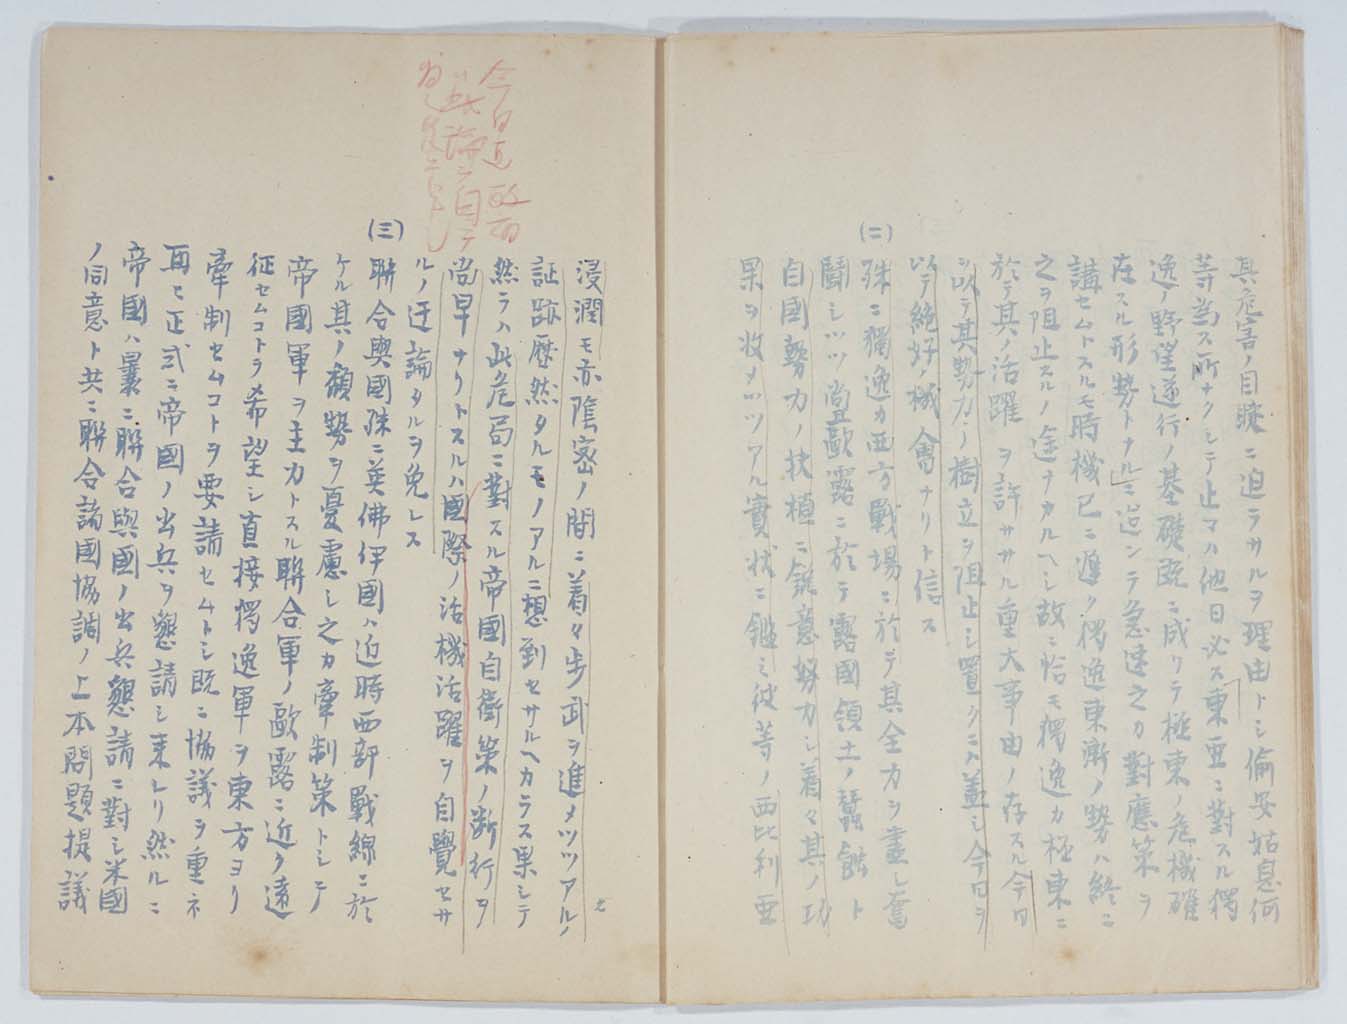 其危害ノ目睫ニ迫ラサルヲ理由トシ偸安姑息何
等為ス所ナクシテ止マハ他日必ス東亜ニ對スル獨
逸ノ野望遂行ノ基礎既ニ成リテ極東ノ危機確
在スル形勢トナルニ迨ンテ急速之カ對應策ヲ
講セムトスルモ時機已ニ遅ク獨逸東漸ノ勢ハ終ニ
之ヲ阻止スルノ途ナカルヘシ故ニ恰モ獨逸カ極東ニ
於テ其ノ活躍ヲ許サヽル重大事由ノ存スル今日
ヲ以テ其勢力ノ樹立ヲ阻止シ置クコト蓋シ今日ヲ
以テ絶好機會ナリト信ス
(二)
殊ニ獨逸カ西方戰場ニ於テ其全力ヲ盡シ奮
鬪シツツ尚且歐露ニ於テ露國領土ノ蠶蝕ト
自國勢力ノ扶植ニ鋭意努力シ着々其ノ功
果ヲ收メツツアル實状ニ鑑ミ彼等ノ西比利亜
浸潤モ亦陰密ノ間ニ着々歩武ヲ進メツツアルノ
証跡歴然タルモノアルニ想到セサルヘカラス果シテ
然ラハ此危局ニ對スル帝國自衛策ノ断行ヲ
尚早ナリトスルハ國際ノ活機活躍ヲ自覺セサ
ルノ迂論タルヲ免レス
(三)
聯合與國殊ニ英佛伊國ハ近時西部戰線ニ於
ケル其ノ頽勢ヲ憂慮シ之カ牽制策トシテ
帝國軍ヲ主力トスル聯合軍ノ歐露ニ近ク遠
征セムコトヲ希望シ直接獨逸軍ヲ東方ヨリ
牽制セムコトヲ要請セムトシ既ニ協議ヲ重ネ
再ヒ正式ニ帝國ノ出兵ヲ懇請シ来レリ然ルニ
帝國ハ曩ニ聯合與國ノ出兵懇請ニ對シ米國
ノ同意ト共ニ聯合諸國協調ノ上本問題提議
今日迄
此論